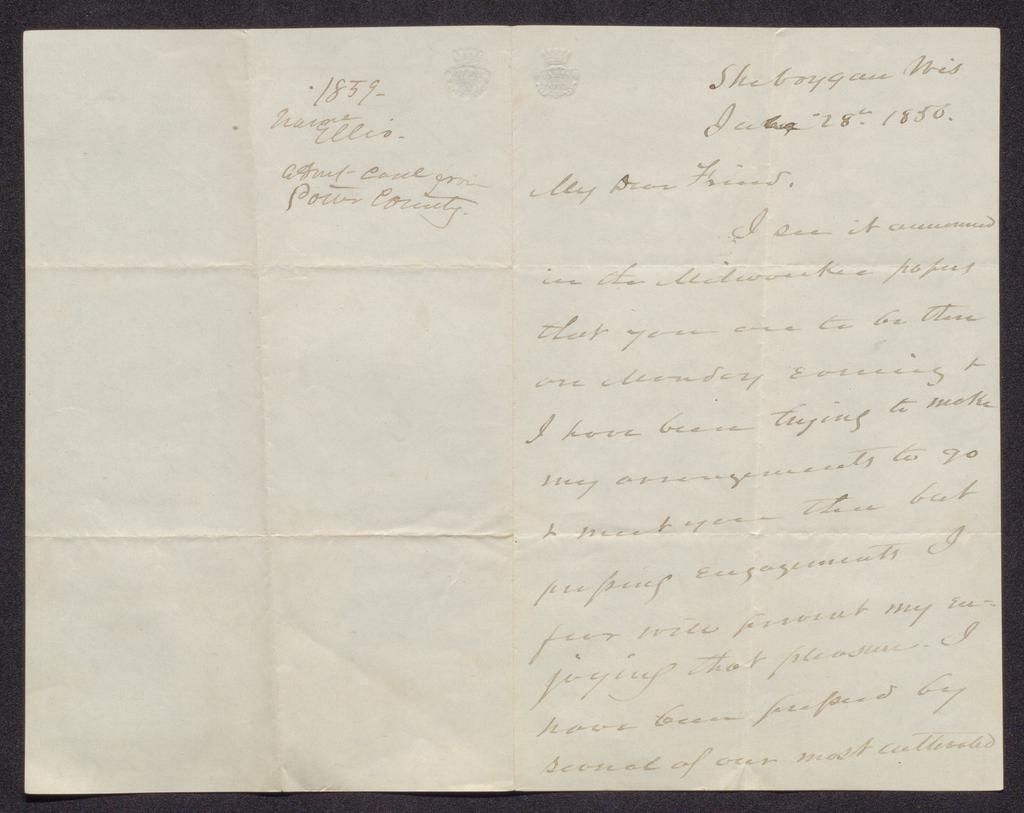 1859-
Ellis.
County.
Sheboygan Wis
28th 1856.
My Dear Friend.
I see it announced
in the Milwaukee papers
that you are to be there
on Monday evening &
I have been trying to make
my arrangements to go
& meet you there but
pressing engagements I
fear will prevent my en-
joying that pleasure. I
have been pressed by
several of our most cultivated